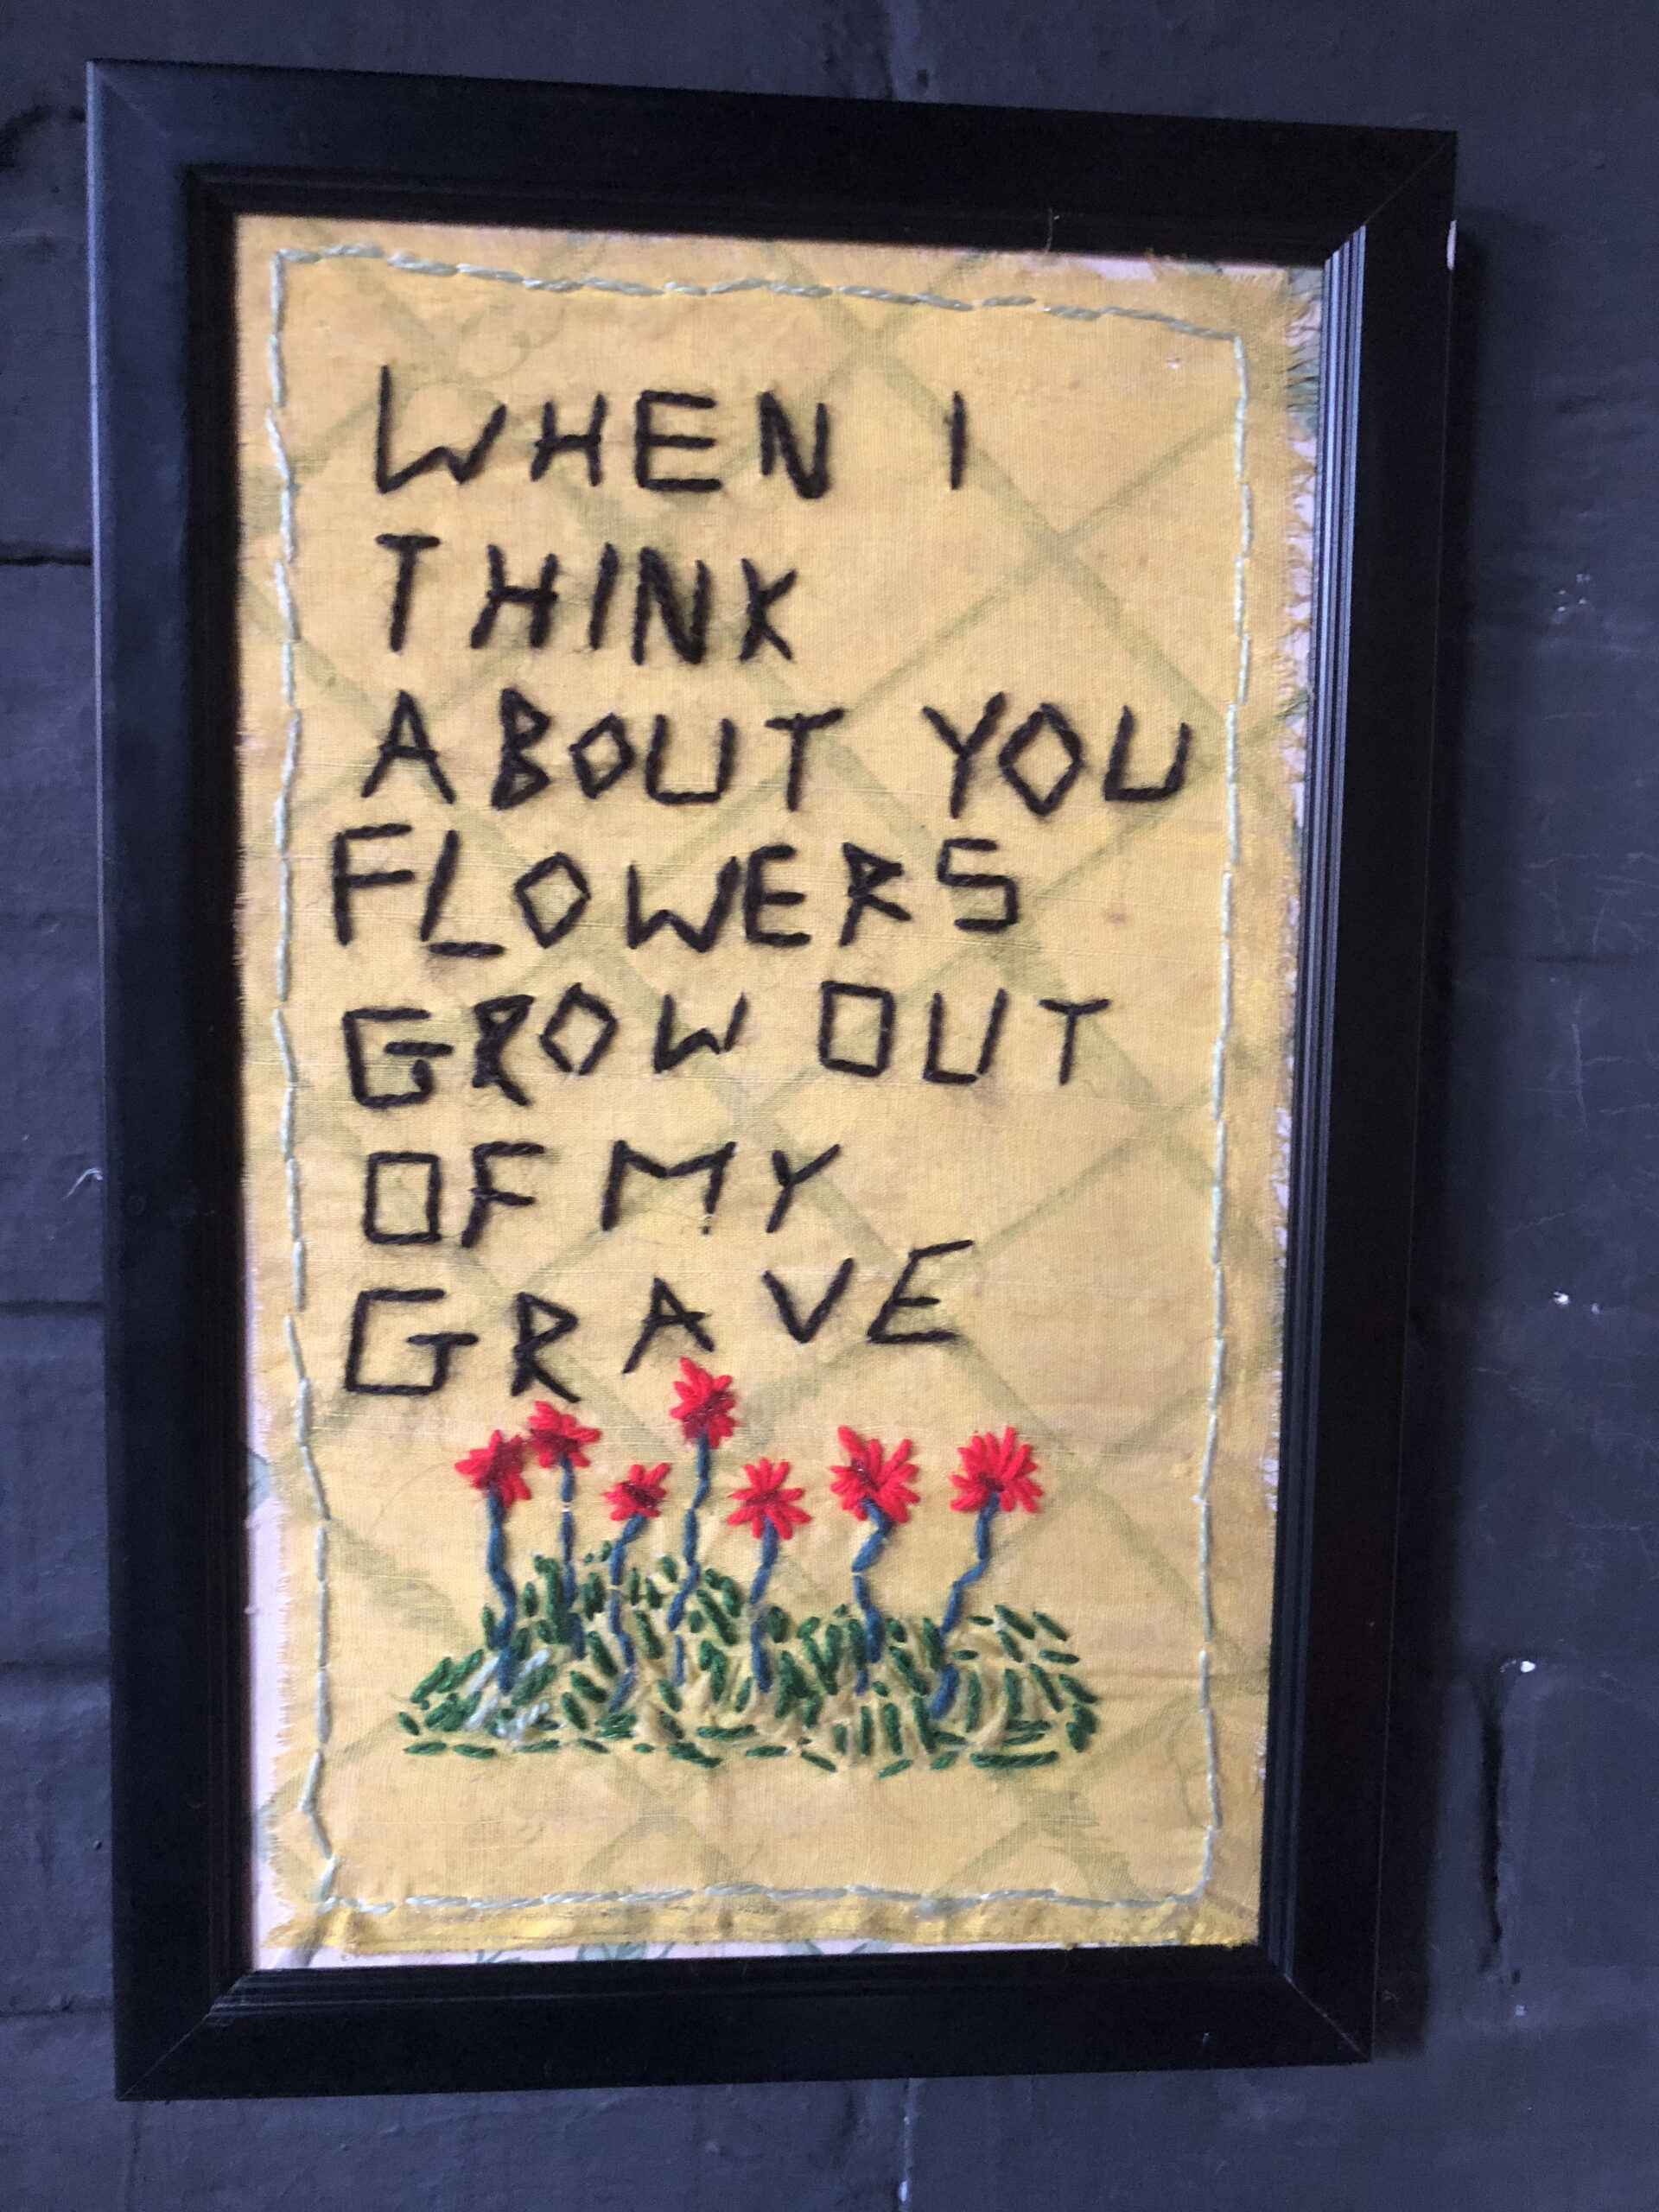 WHEN I
THINK
ABOUT YOU
FLOWERS
GROW OUT
OF MY
GRAVE